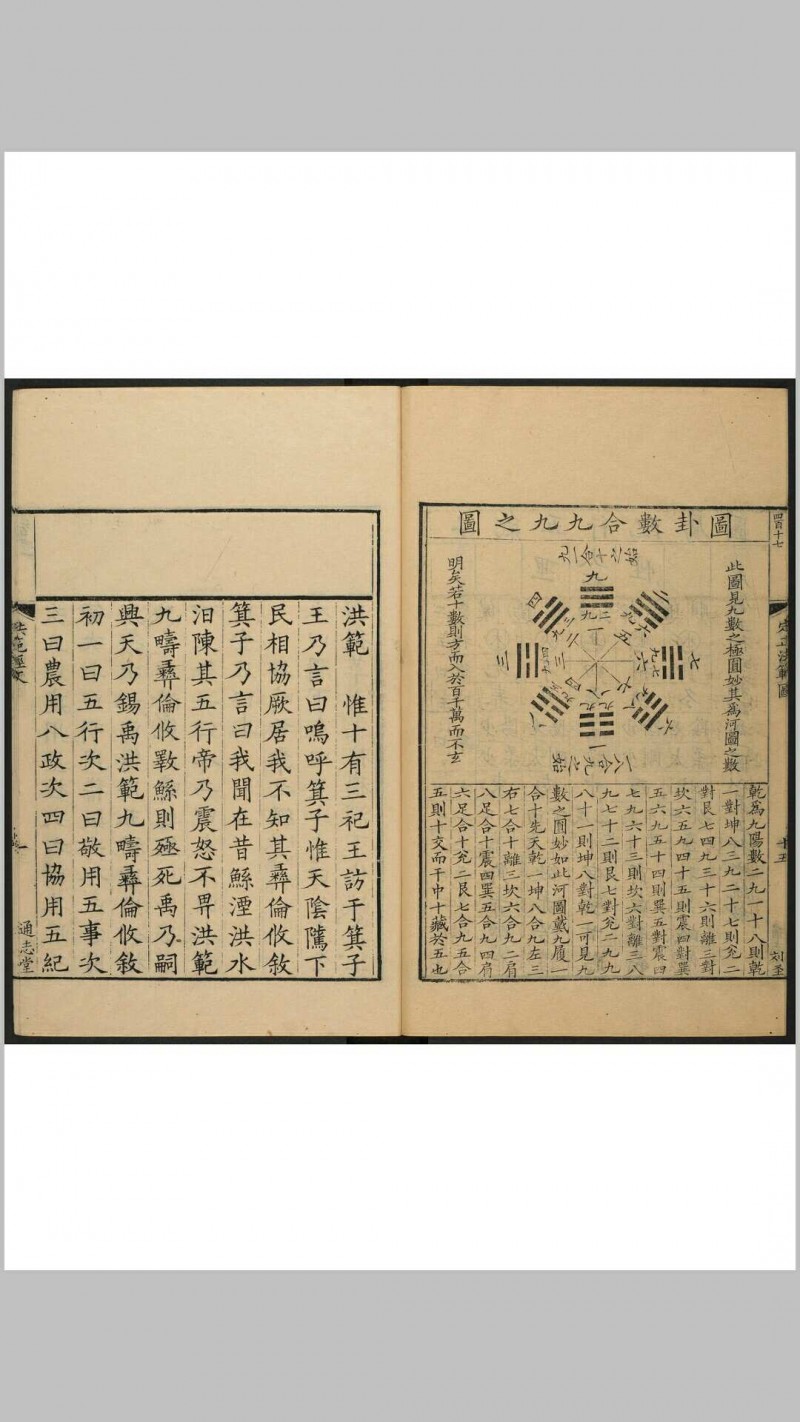 四百十七
定正洪範圖
十五
刘圣
圖卦數合九九之圖
此圖見九數之極圓妙其為河圖之數
明矣若十數則方而入於百千萬而不玄
九
二九
一
四
三
六
七
九
八
一
乾為九陽數二九一十八則乾
一對坤八三九二十七則兊二
對艮七四九三十六則離三對
坎六五九四十五則震四對巽
五六九五十四則巽五對震四
七九六十三則坎六對離三八
九七十二則艮七對兊二九九
八十一則坤八對乾一可見九
數之圓妙如此河圖戴九履一
合十先天乾一坤八合九左三
右七合十離三坎六合九二肩
八足合十震四巽五合九四肩
六足合十兊二艮七合九五合
五則十交而干中十藏於五也
洪範　惟十有三祀王訪于箕子
王乃言曰嗚呼箕子惟天陰騭下
民相協厥居我不知其彝倫攸敘
箕子乃言曰我聞在昔鯀湮洪水
汩陳其五行帝乃震怒不畀洪範
九疇彝倫攸斁鯀則殛死禹乃嗣
興天乃錫禹洪範九疇彝倫攸敘
初一曰五行次二曰敬用五事次
三曰農用八政次四曰協用五紀
洪範經文
一
通志堂